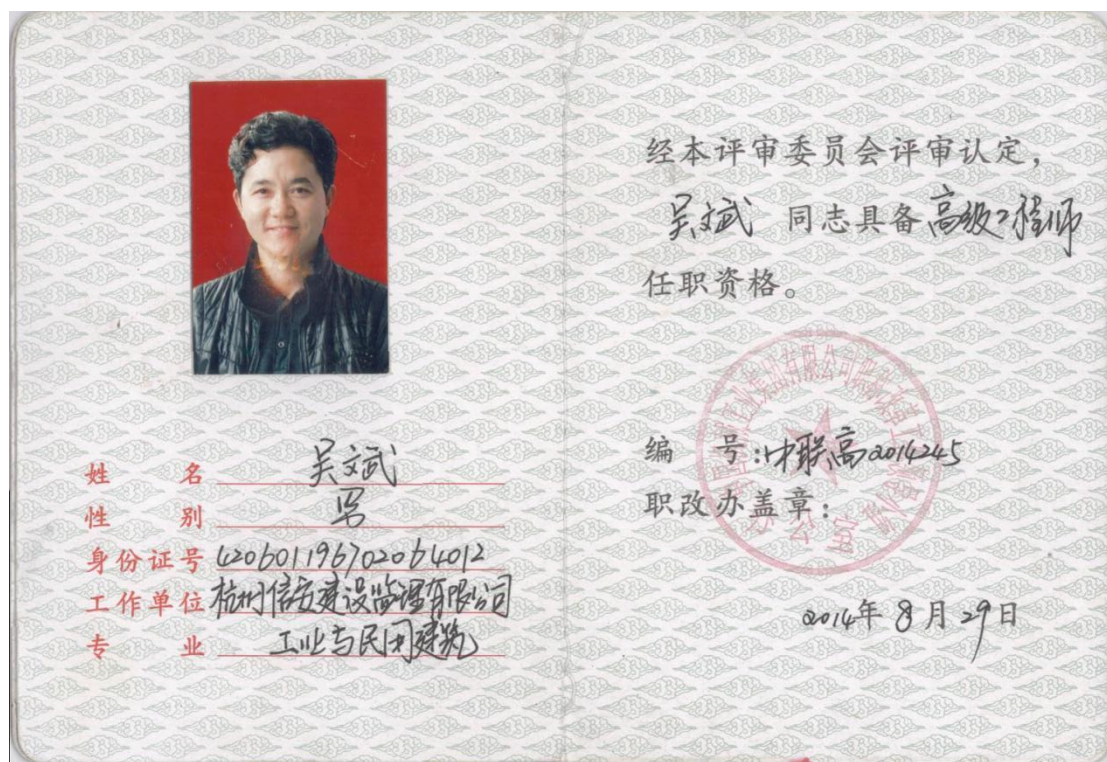 姓名 吴文武
性别 男
身份证号 420601196702064012
工作单位 杭州信安建设监理有限公司
专业 工业与民用建筑
经本评审委员会评审认定，
吴文武 同志具备 高级工程师
任职资格。
编号：中联高2014245
职改办盖章：
2014年8月29日